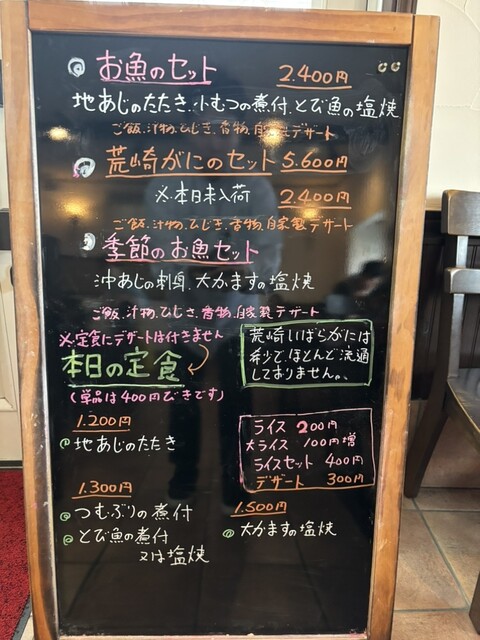 お魚のセット 2.400円
地あじのたたき.小むつの煮付.とび魚の塩焼
ご飯.汁物.ひじき.香物.自家製デザート
荒崎がにのセット 5.600円
※本日未入荷 2.400円
ご飯.汁物.ひじき.香物.自家製デザート
季節のお魚セット
沖あじの刺身.大かますの塩焼
ご飯.汁物.ひじき.香物.自家製デザート
※定食にデザートは付きません
本日の定食
(単品は400円びきです)
荒崎いばらがには
希少でほとんど流通
しておりません。
1.200円
地あじのたたき
ライス 200円
大ライス 100円増
ライスセット 400円
デザート 300円
1.300円
つむぶりの煮付
とび魚の煮付
又は塩焼
1.500円
大かますの塩焼